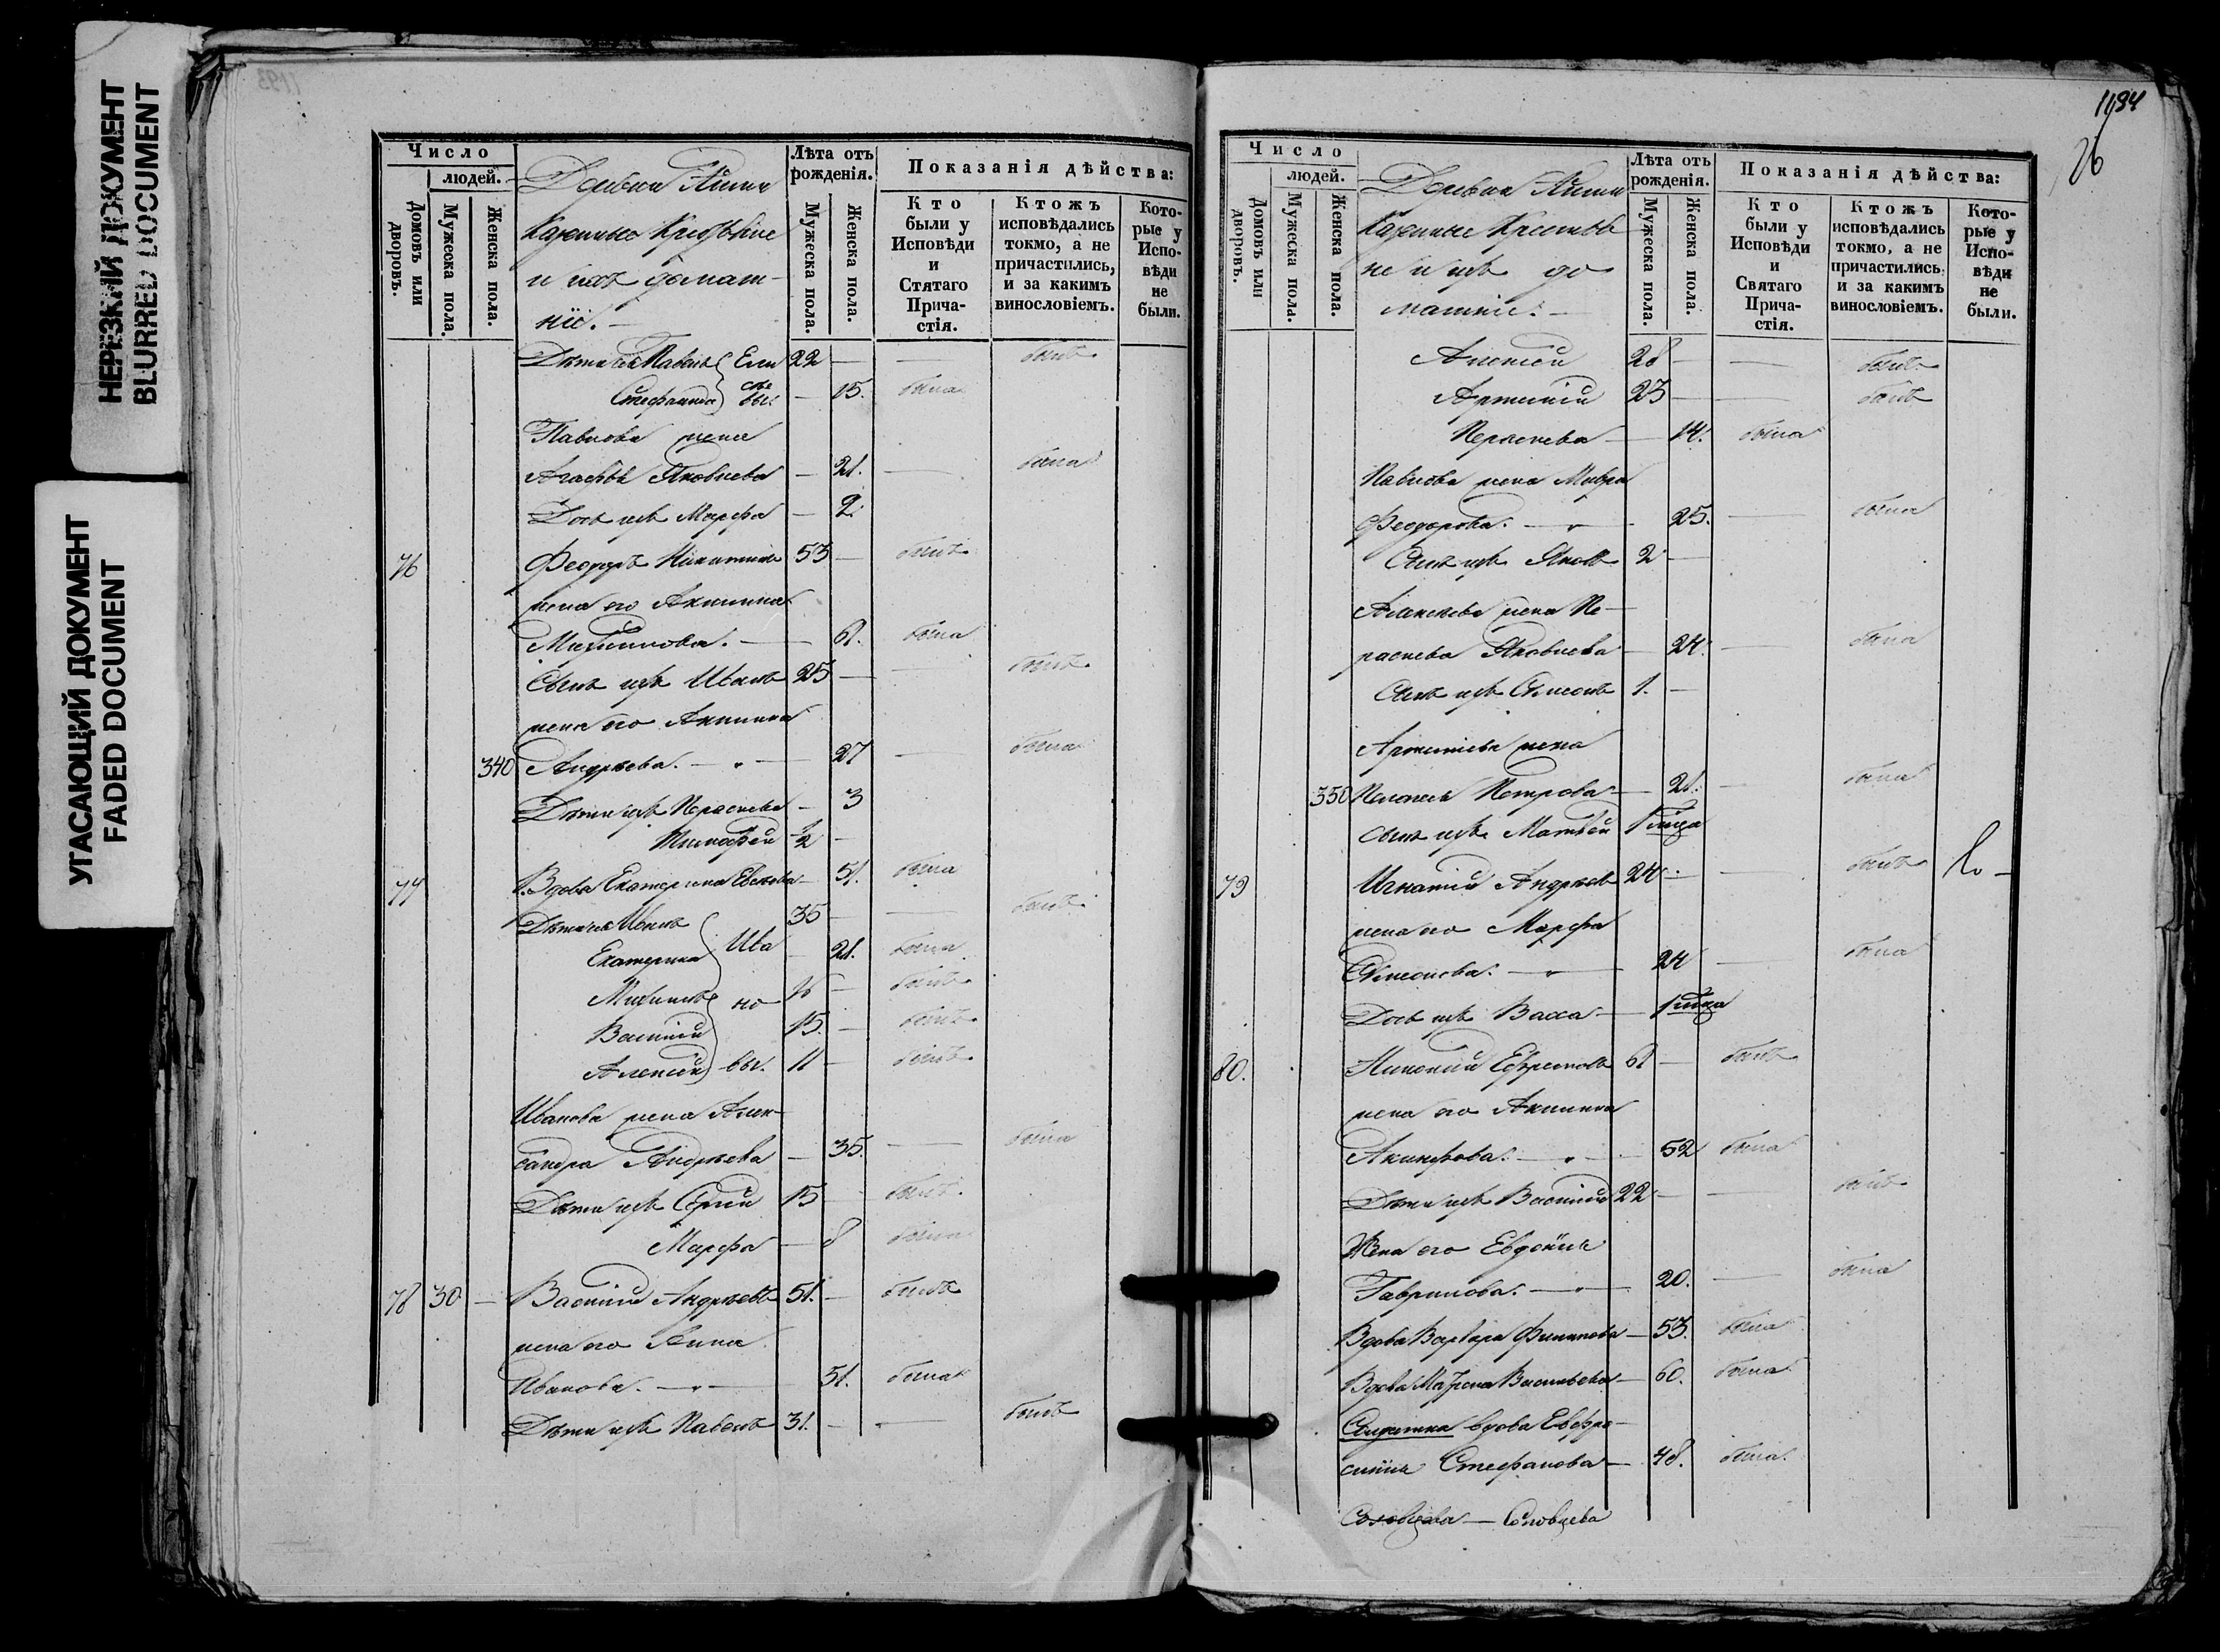 НЕРЕЗКИЙ ДОКУМЕНТ
BLURRED DOCUMENT
УГАСАЮЩИЙ ДОКУМЕНТ
FADED DOCUMENT
Число
людей.
Домовъ или дворовъ.
Мужеска пола.
Женска пола.
Деревни
Лѣта отъ рожденія.
Мужеска пола.
Женска пола.
Показанія дѣйства:
Кто были у Исповѣди и Стятаго Прича-стія.
Ктожъ исповѣдались токмо, а не причастились, и за какимъ винословіемъ.
Кото-рые у Испо-вѣди не были.
и ихъ домаш-
ніе. —
Дѣти Павелъ Ели 22 — — былъ
Стефанида сѣевы: — 15. была
Павлова жена
Агафья Яковлева — 21. — была
Дочь ихъ Марфа — 2.
76 Феодоръ Никитинъ 53 — былъ
жена его Акилина
Михайлова. — — 61. была
Сынъ ихъ Иванъ 25 — былъ
жена его Акилина
340 Андреева. — „ — 27 — была
Дѣти ихъ Параскева — 3
Тимофей ½ —
77 Вдова Екатерина — 51. была
Дѣти ея Иванъ 35 — — былъ
Екатерина Ива — 21. была
Михаилъ но 16 — былъ
Василій 15. — былъ
Алексѣй вы. 11 — былъ
Иванова жена Алек-
сандра Андреева — 35. — была
Дѣти ихъ Сергѣй 15 — былъ
Марфа — 8 была
78 30 — Василій Андреевъ 51. — былъ
жена его Анна
Иванова. — „ — 51. была
Дѣти ихъ Павелъ 31. — — былъ
1194
26
Число
людей.
Домовъ или дворовъ.
Мужеска пола.
Женска пола.
Деревни
Казенные Крестья
не и ихъ до
машніе. —
Лѣта отъ рожденія.
Мужеска пола.
Женска пола.
Показанія дѣйства:
Кто были у Исповѣди и Святаго Прича-стія.
Ктожъ исповѣдались токмо, а не причастились, и за какимъ винословіемъ.
Кото-рые у Испо-вѣди не были.
Алексѣй 28 — — былъ
Артемій 23 — — былъ
Параскева — 14. была
Павлова жена Мавра
Феодорова. — „ — 25. — была
Сынъ ихъ Яковъ 2 —
Алексѣева жена Па-
раскева Яковлева — 24. — была
Сынъ ихъ Симеонъ 1. —
Артеміева жена
350 Пелагея Петрова — 21. — была
сынъ ихъ Матвѣй 1 мѣсяца
79 Игнатій Андреевъ 24 — — былъ
жена его Марфа
Симеонова. — „ — 24 — была
Дочь ихъ Васса — 1 мѣсяца
80. Николай Ефремовъ 61 — былъ
жена его Акилина
Акинфова. — „ — 52 была
Дѣти ихъ Василій 22 — — былъ
Жена его Евдокія
Гаврилова. — „ — 20. — была
Вдова Варвара Филипова — 53. была
Вдова Васильева — 60. была
Солдатка вдова Евфро-
синія Стефанова — 48. была.
Соловцева — Соловцева